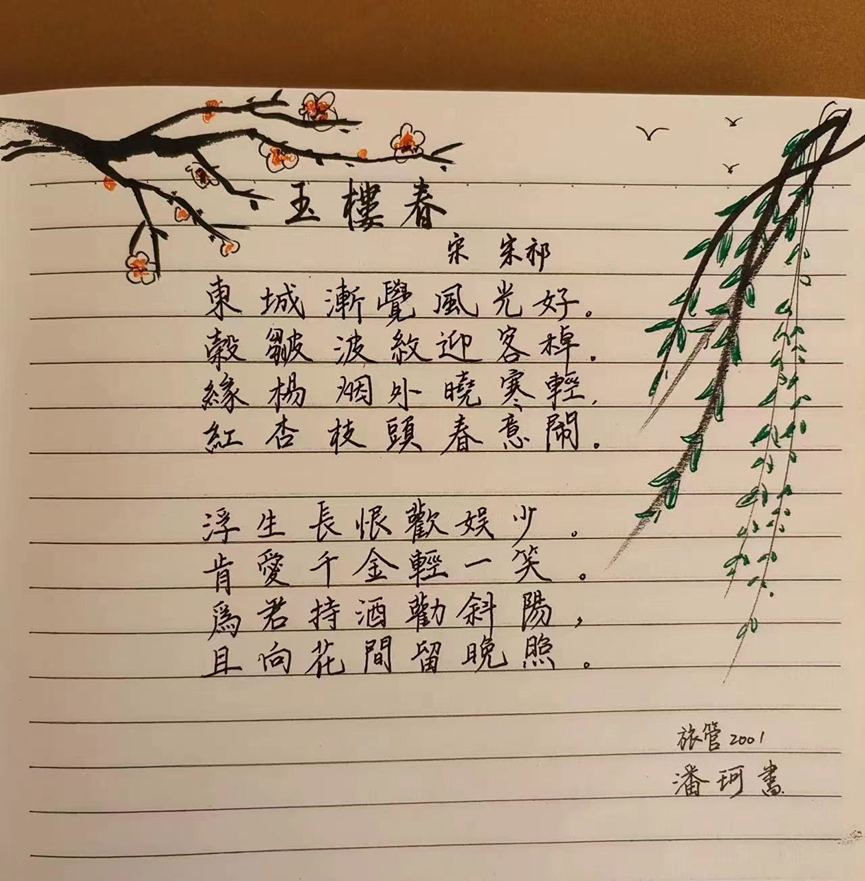 玉樓春
宋 宋祁
東城漸覺風光好。
縠皺波紋迎客棹。
緣楊烟外曉寒輕，
紅杏枝頭春意鬧。
浮生長恨歡娱少。
肯愛千金輕一笑。
爲君持酒勸斜陽，
且向花間留晚照。
旅管2001
潘珂書